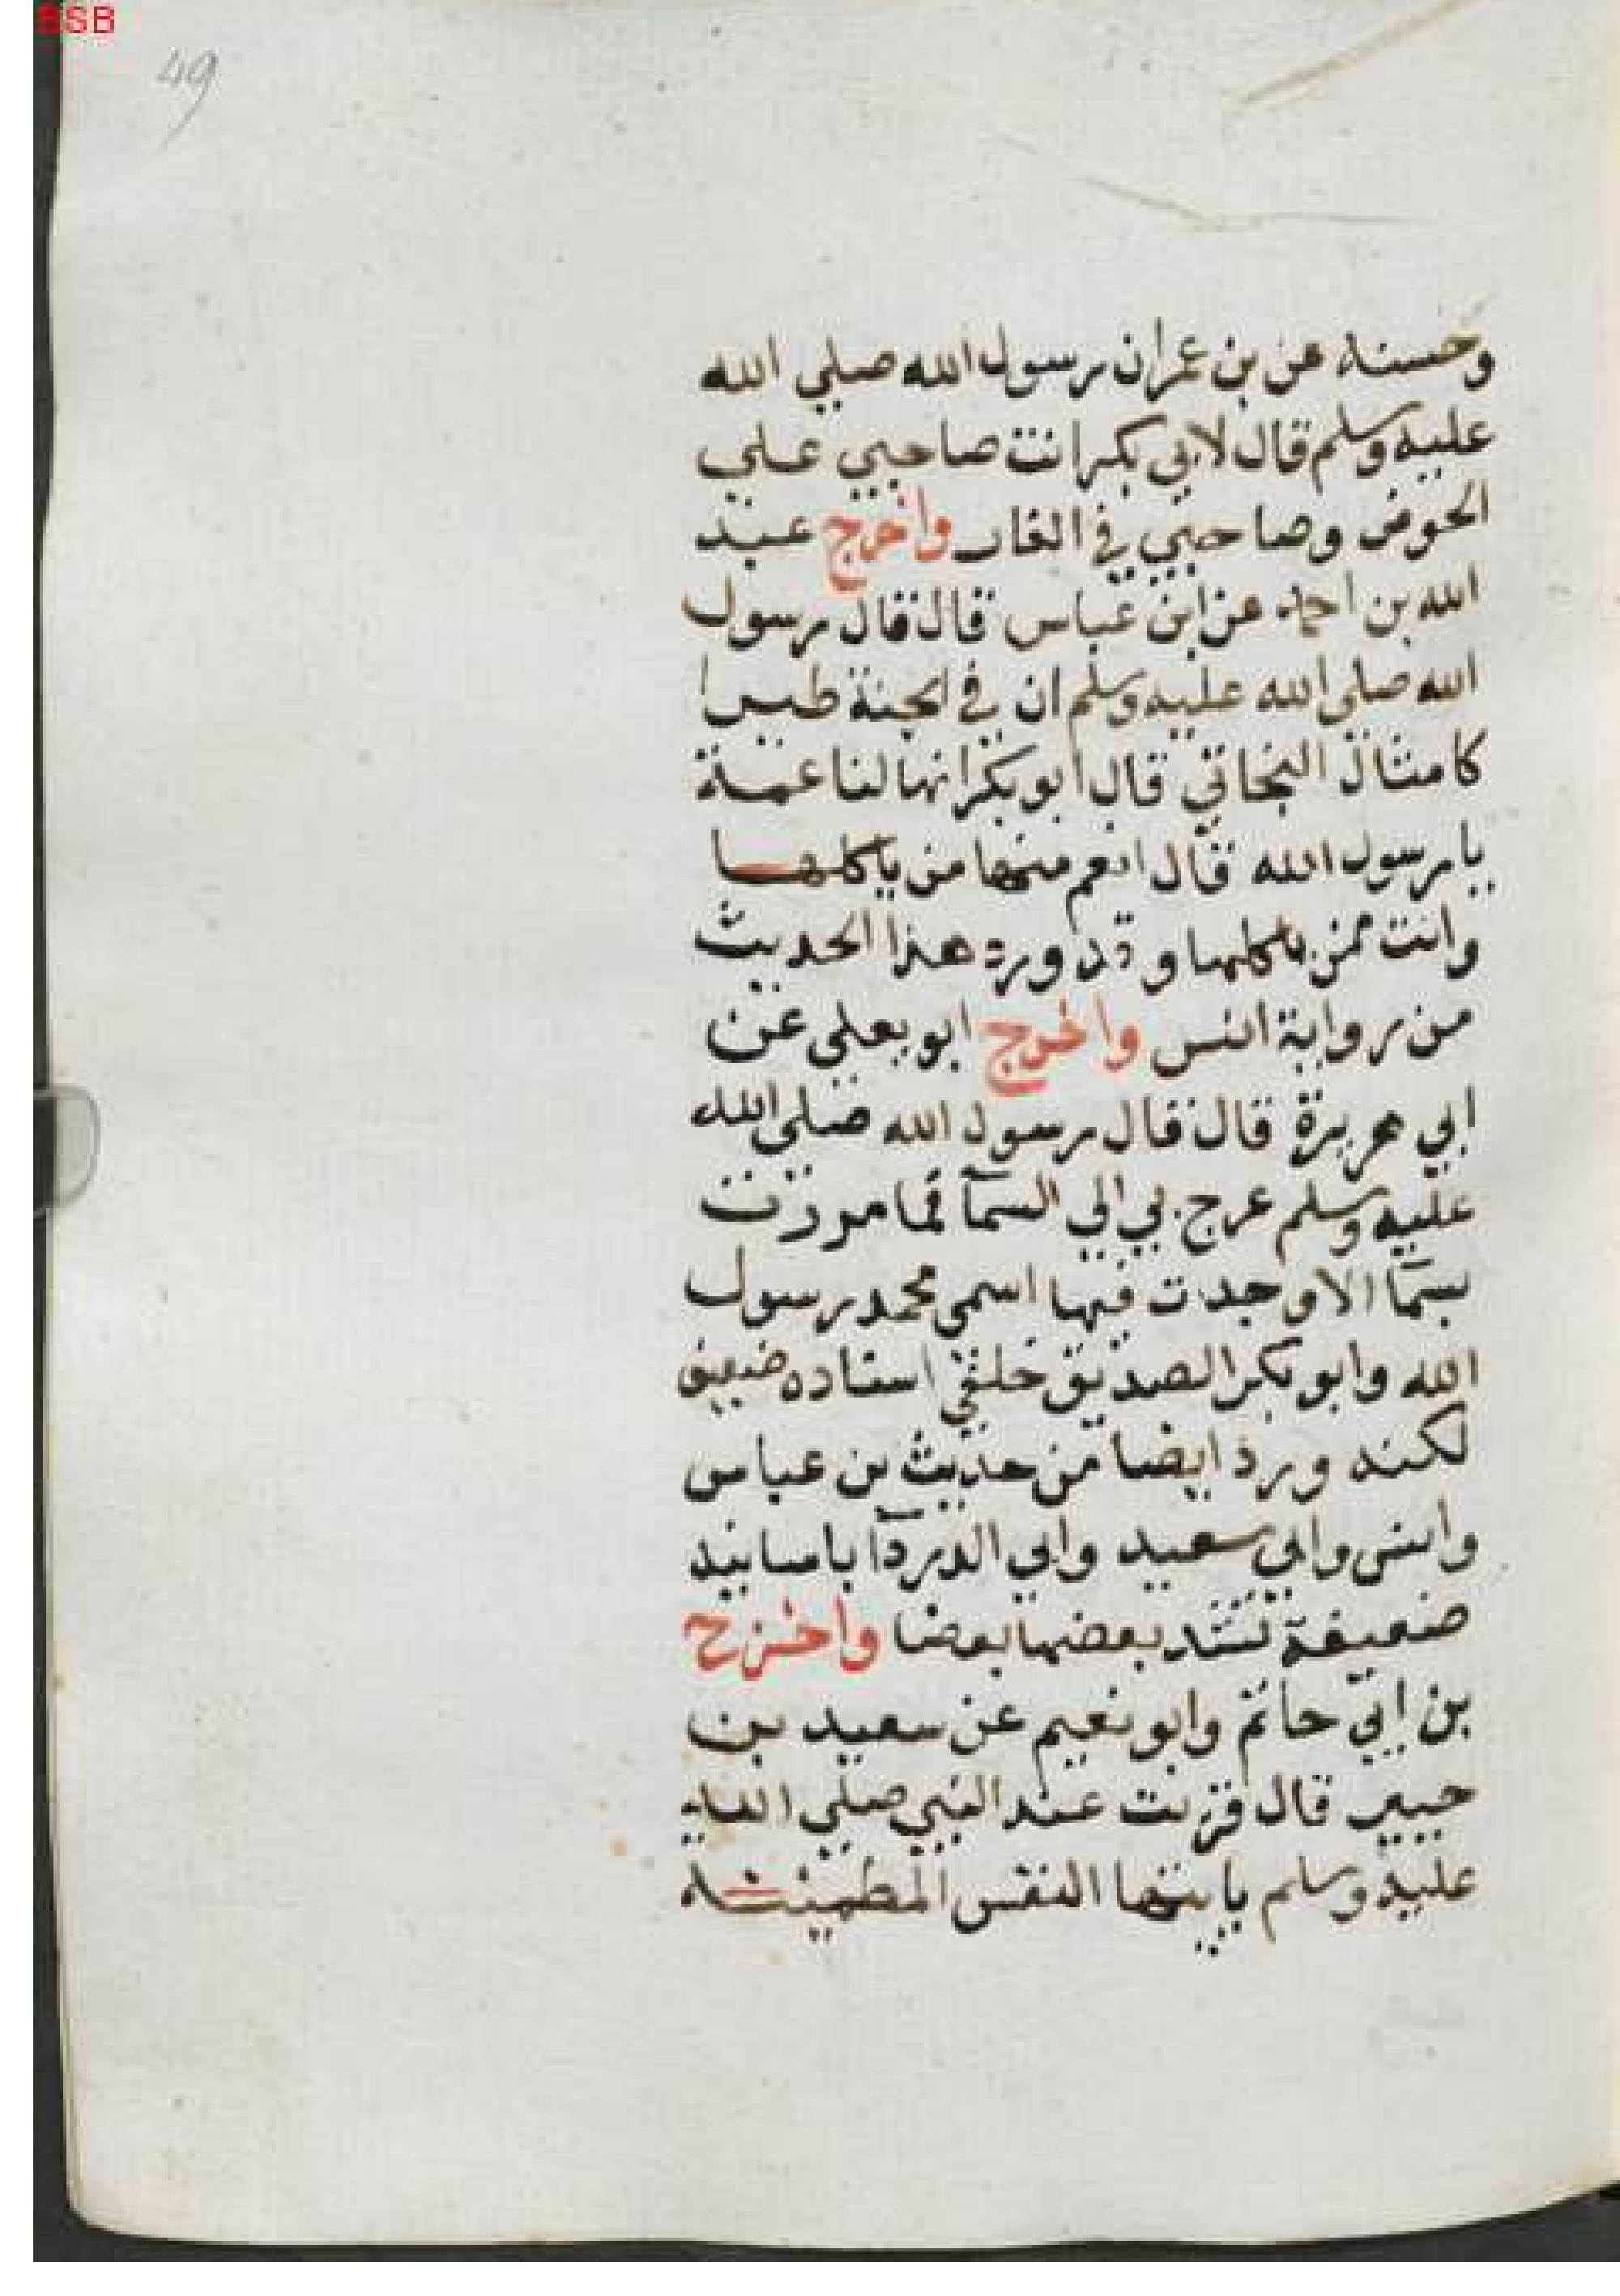 BSB
49
وحسنه عن بن عمران رسول الله صلي الله
عليه وسلم قال لابي بكر انت صاحبي علي
الحوض وصاحبي في الغار واخرج عبد
الله بن احمد عن ابن عباس قال قال رسول
الله صلي الله عليه وسلم ان في الجنة طيرا
كامثال البخاتي قال ابو بكر انها لناعمة
يا رسول الله قال انعم منها من ياكلها
وانت ممن ياكلها وقد ورد هذا الحديث
من رواية انس واخرج ابو يعلي عن
ابي هريرة قال قال رسول الله صلي الله
عليه وسلم عرج بي الي السمآ فما مررت
بسمآ الا وجدت فيها اسمي محمد رسول
الله وابو بكر الصديق خلفي اسناده ضعيف
لكنه ورد ايضا من حديث بن عباس
وانس وابي سعيد وابي الدردآ باسانيد
ضعيفة تشد بعضها بعضا واخرج
بن ابي حاتم وابو نعيم عن سعيد بن
جبير قال قريت عند النبي صلي الله
عليه وسلم يايتها النفس المطمينة